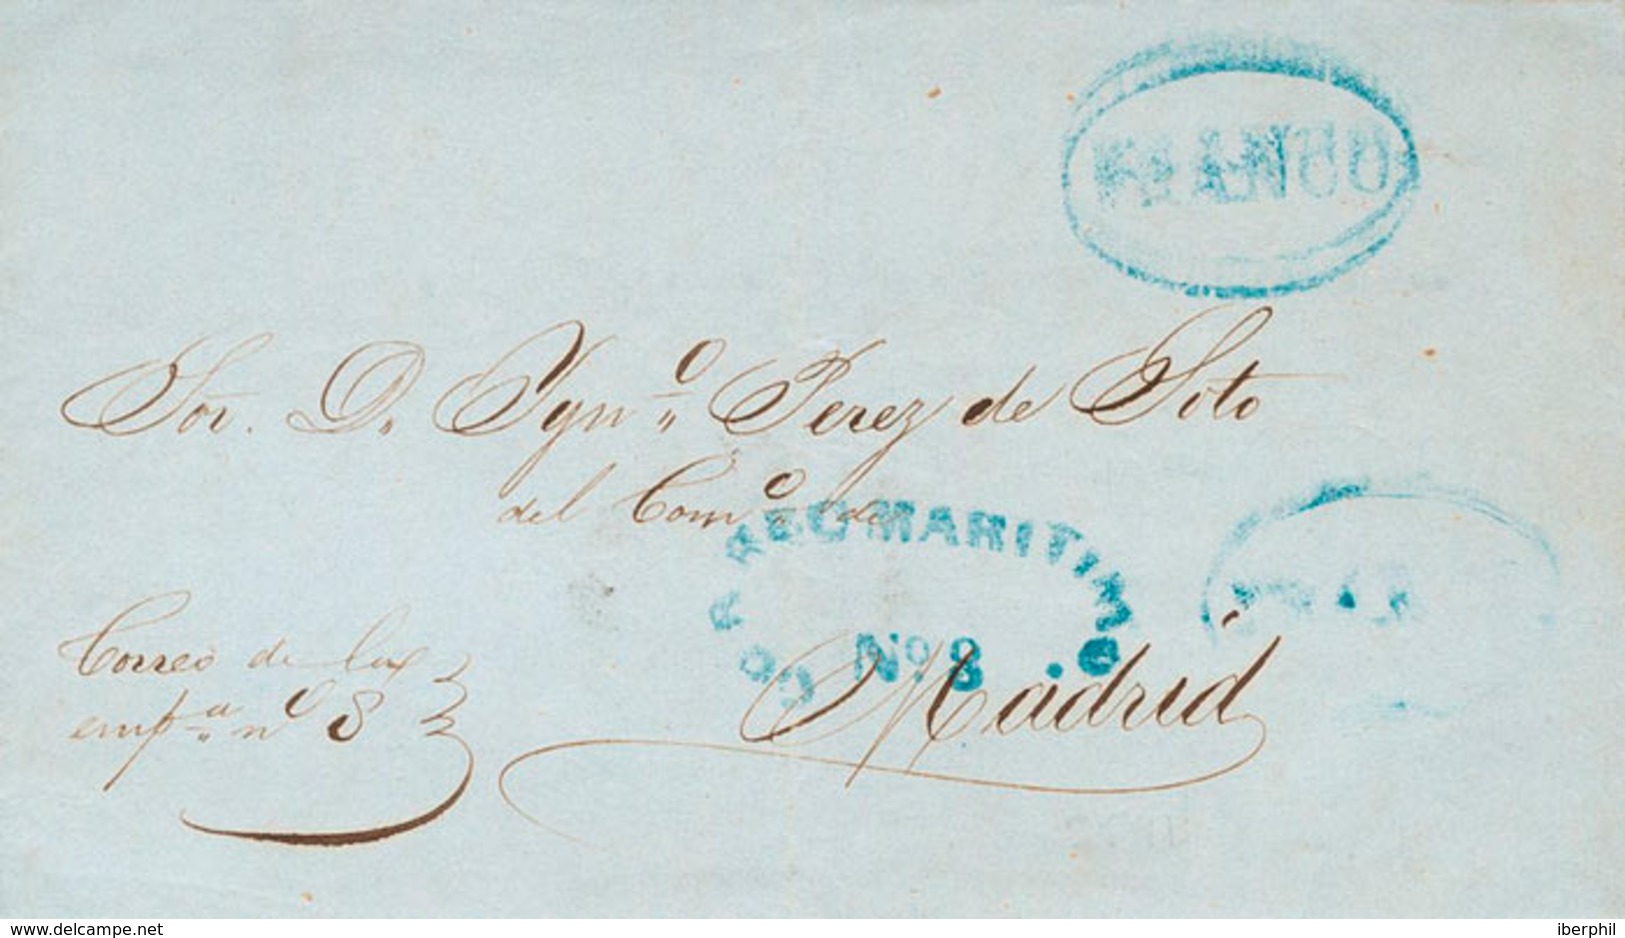 FRANCO
Sor. D. Ygn.º Perez de Soto
del Com.º de
CORREO MARITIMO.
Nº 8
Correo de la
emp.ª nº 8
Madrid
www.delcampe.net
iberphil